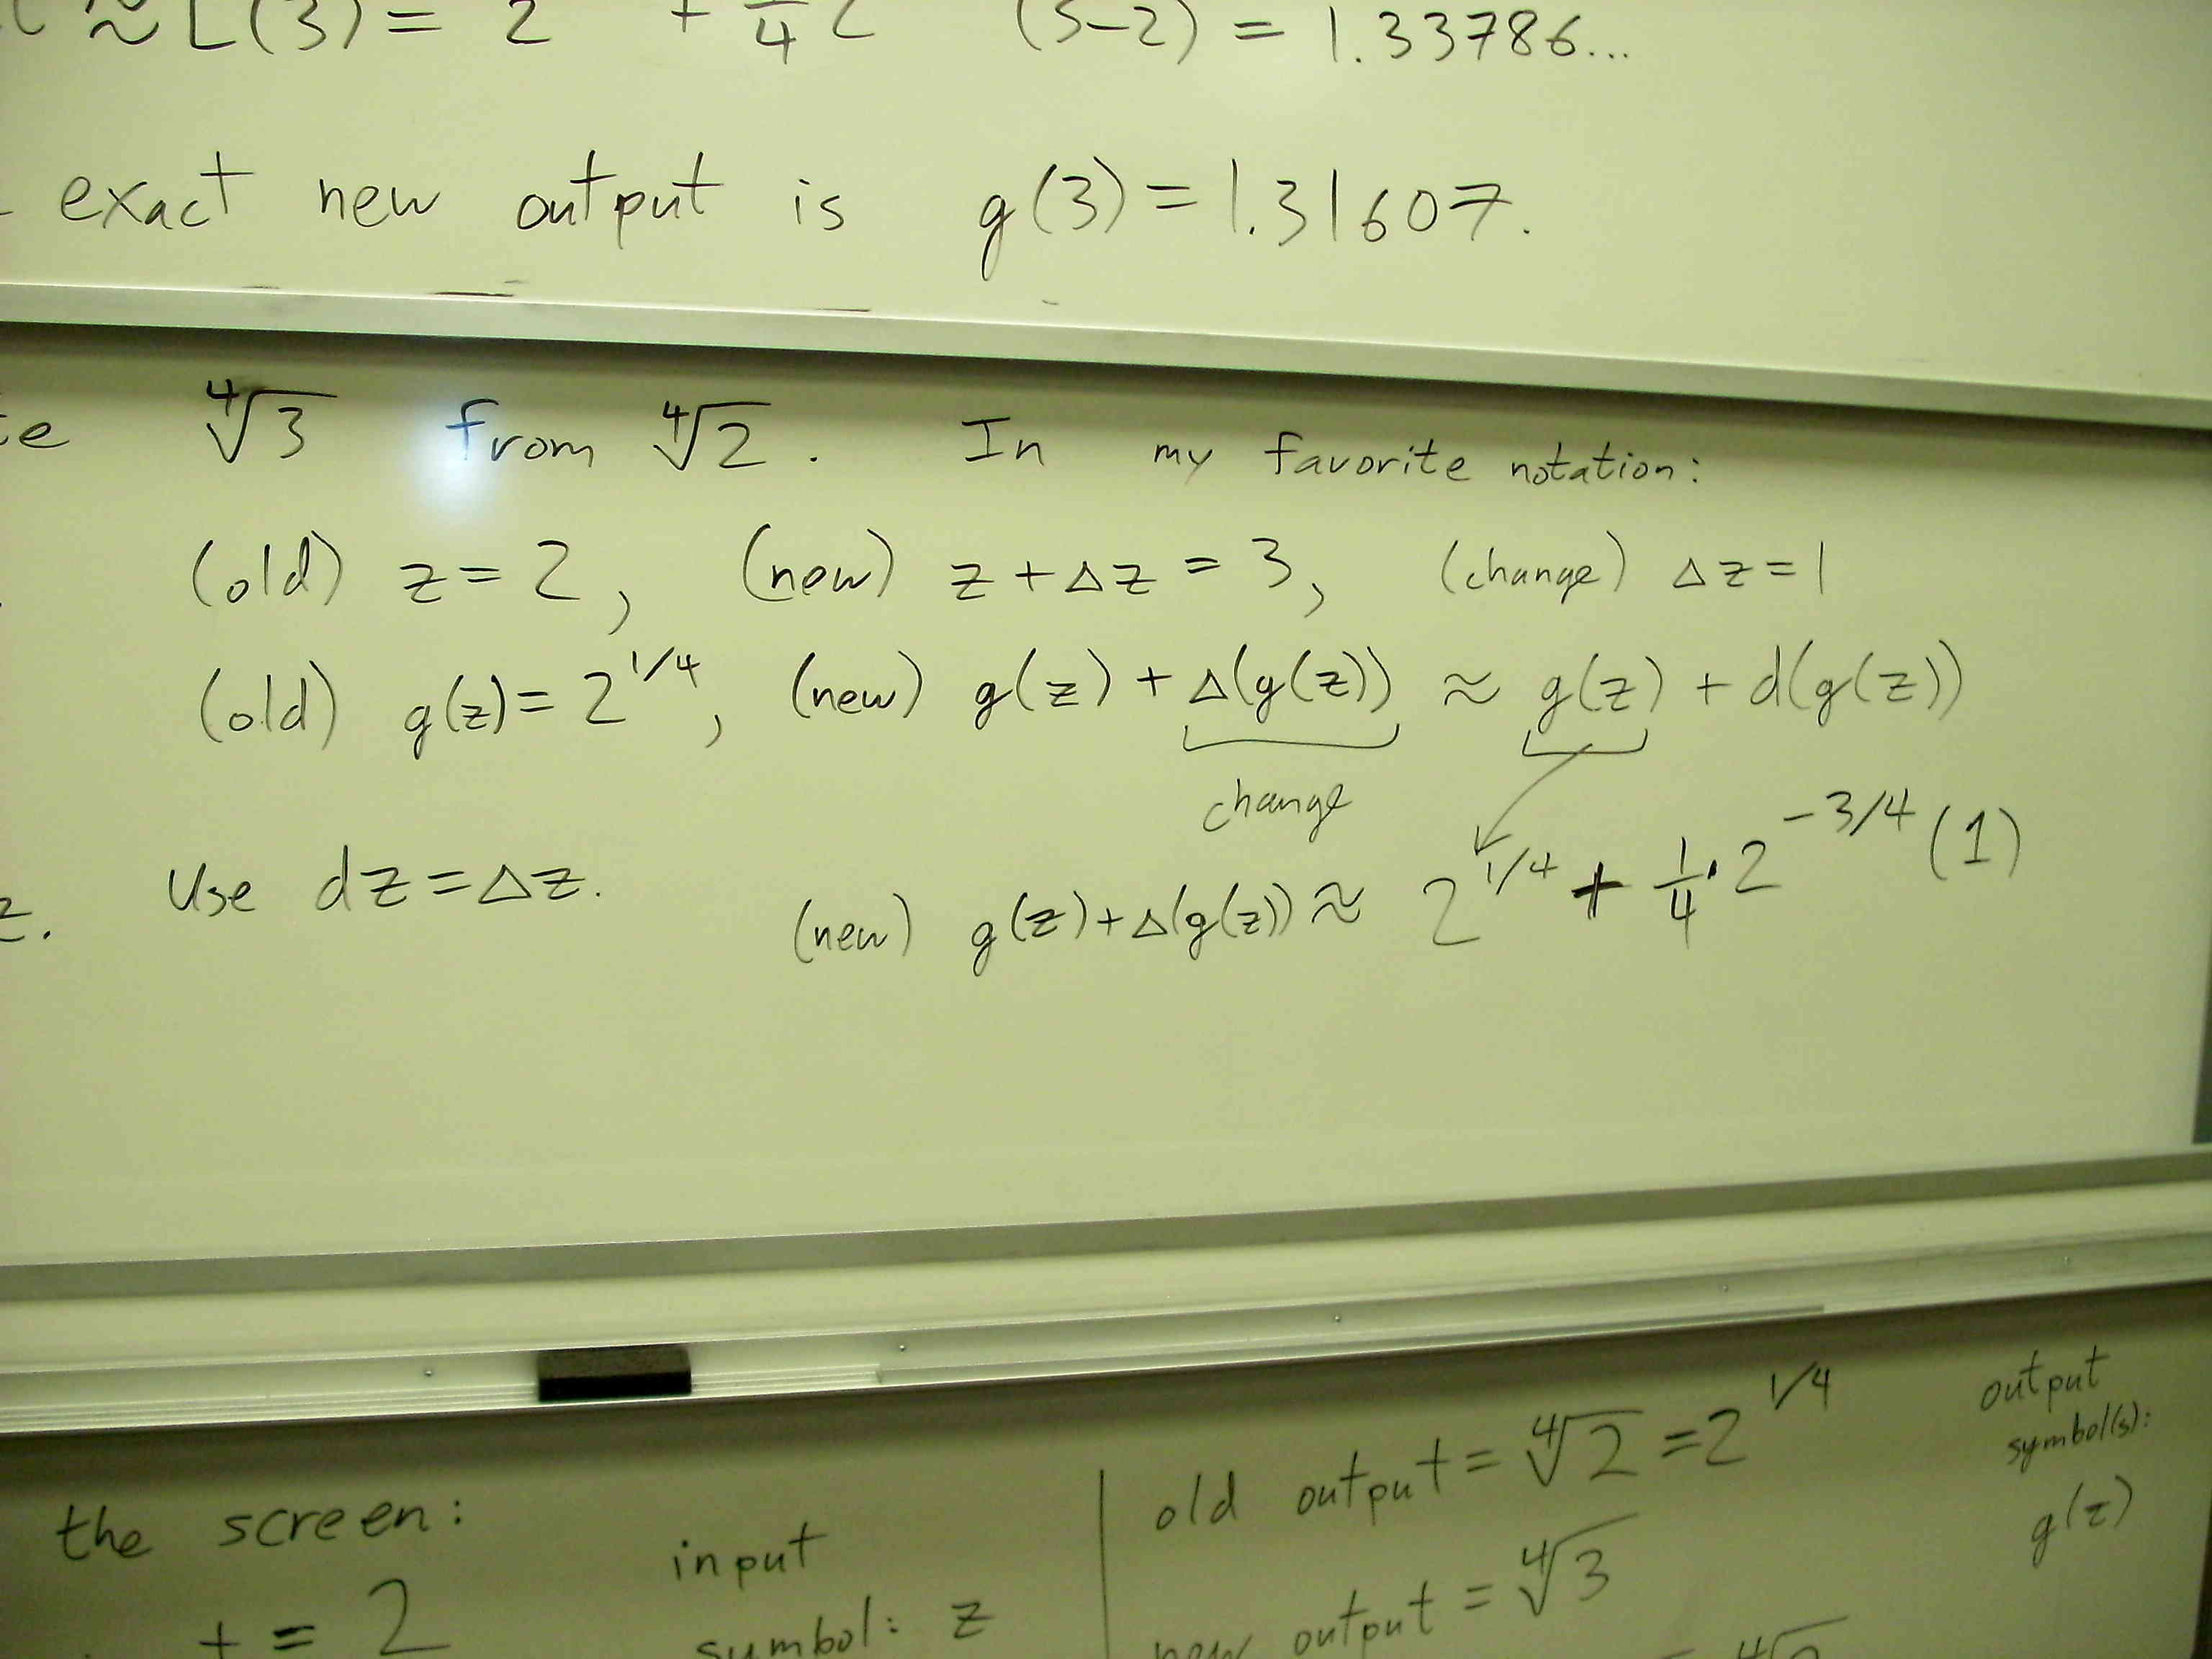 ≈ L(3) = 2 + 1/4 2 (3-2) = 1.33786...
exact new output is g(3) = 1.31607.
∜3 from ∜2. In my favorite notation:
(old) z = 2, (new) z + Δz = 3, (change) Δz = 1
(old) g(z) = 2^1/4, (new) g(z) + Δ(g(z)) ≈ g(z) + d(g(z))
change
Use dz = Δz.
(new) g(z) + Δ(g(z)) ≈ 2^1/4 + 1/4 · 2^-3/4 (1)
the screen:
= 2
input
symbol: z
old output = ∜2 = 2^1/4
new output = ∜3
output
symbol(s):
g(z)